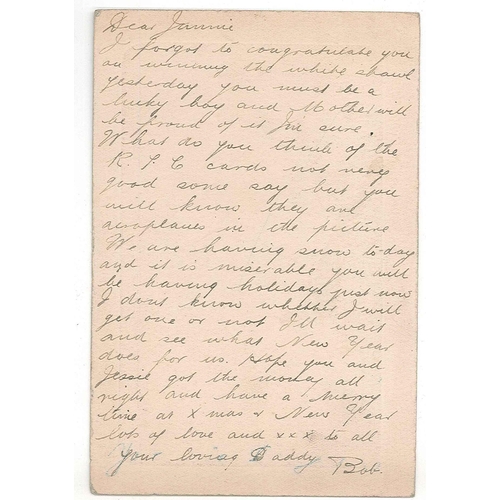 Dear Jimmie
I forgot to congratulate you
on winning the white shawl
yesterday you must be a
lucky boy and Mother will
be proud of it I'm sure.
What do you think of the
R. F. C cards not very
good some say but you
will know they are
aeroplanes in the picture
We are having snow to-day
and it is miserable you will
be having holidays just now
I dont know whether I will
get one or not I'll wait
and see what New Year
does for us. Hope you and
Jessie got the money all
right and have a merry
time at Xmas & New Year
lots of love and xxx to all
Your loving Daddy Bob.